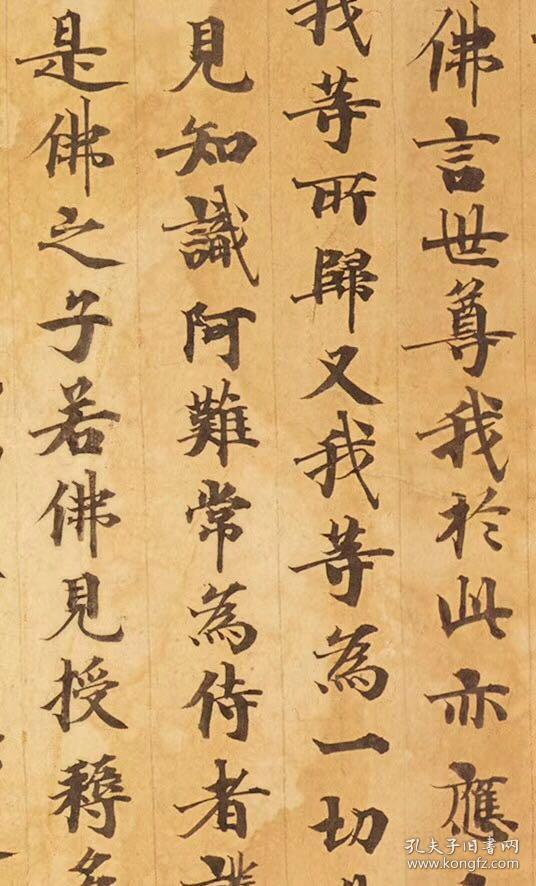 佛言世尊我於此亦應
我等所歸又我等為一切
見知識阿難常為侍者護
是佛之子若佛見授
孔夫子旧书网
www.kongfz.com